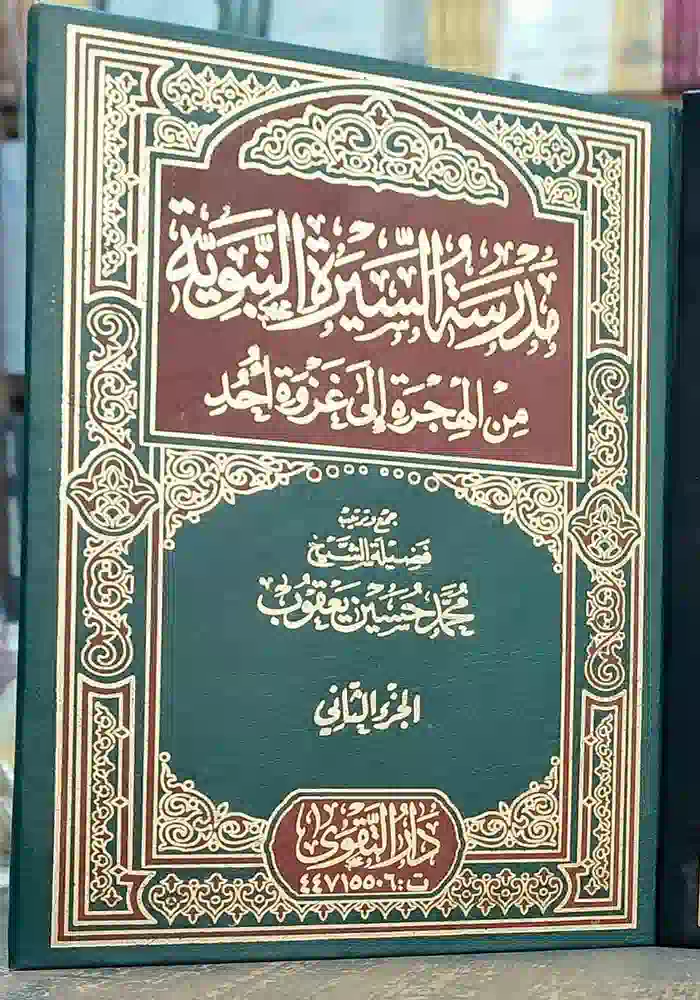 مَدْرَسَةُ السِّيرَةِ النَّبَوِيَّةِ
مِنَ الْهِجْرَةِ إِلَى غَزْوَةِ أُحُدٍ
جمع وترتيب
فضيلة الشيخ
محمد حسين يعقوب
الجزء الثاني
دار التقوى
ت: ٤٤٧١٥٥٠٦